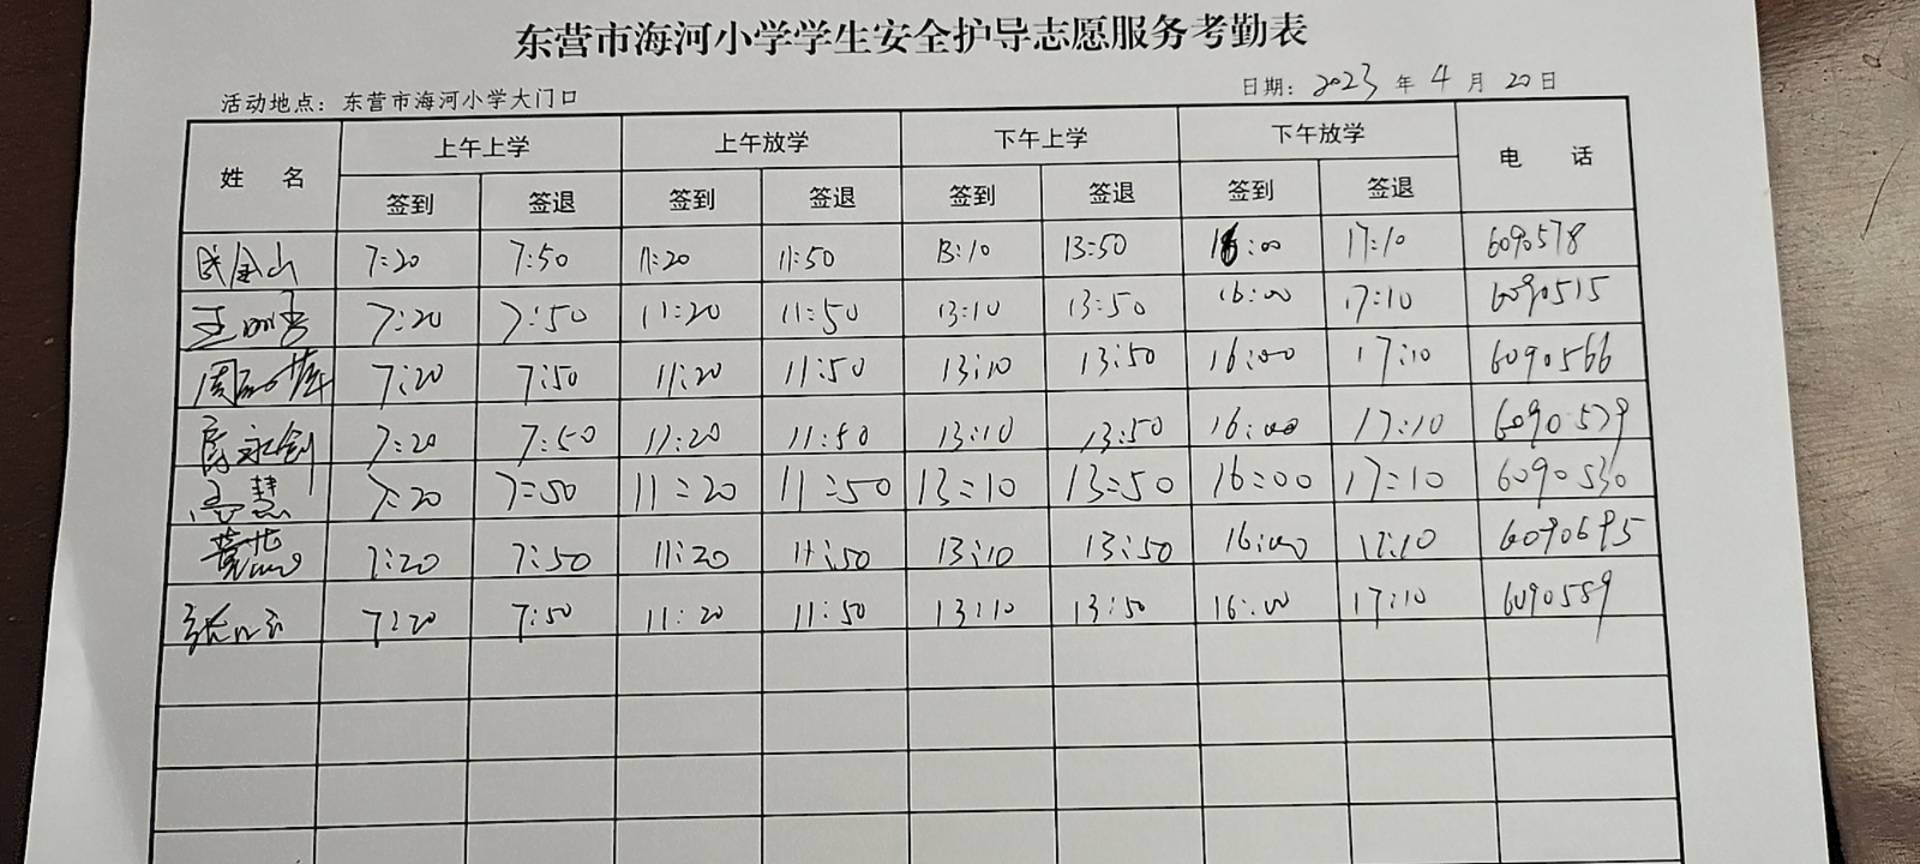 东营市海河小学学生安全护导志愿服务考勤表
活动地点：东营市海河小学大门口 日期：2023年4月20日
姓名 上午上学 上午放学 下午上学 下午放学 电话
签到 签退 签到 签退 签到 签退 签到 签退
7:20 7:50 11:20 11:50 13:10 13:50 16:00 17:10 6090578
7:20 7:50 11:20 11:50 13:10 13:50 16:00 17:10 6090515
7:20 7:50 11:20 11:50 13:10 13:50 16:00 17:10 6090566
7:20 7:50 11:20 11:50 13:10 13:50 16:00 17:10 6090579
高慧 7:20 7:50 11:20 11:50 13:10 13:50 16:00 17:10 6090530
7:20 7:50 11:20 11:50 13:10 13:50 16:00 17:10 6090695
7:20 7:50 11:20 11:50 13:10 13:50 16:00 17:10 6090589